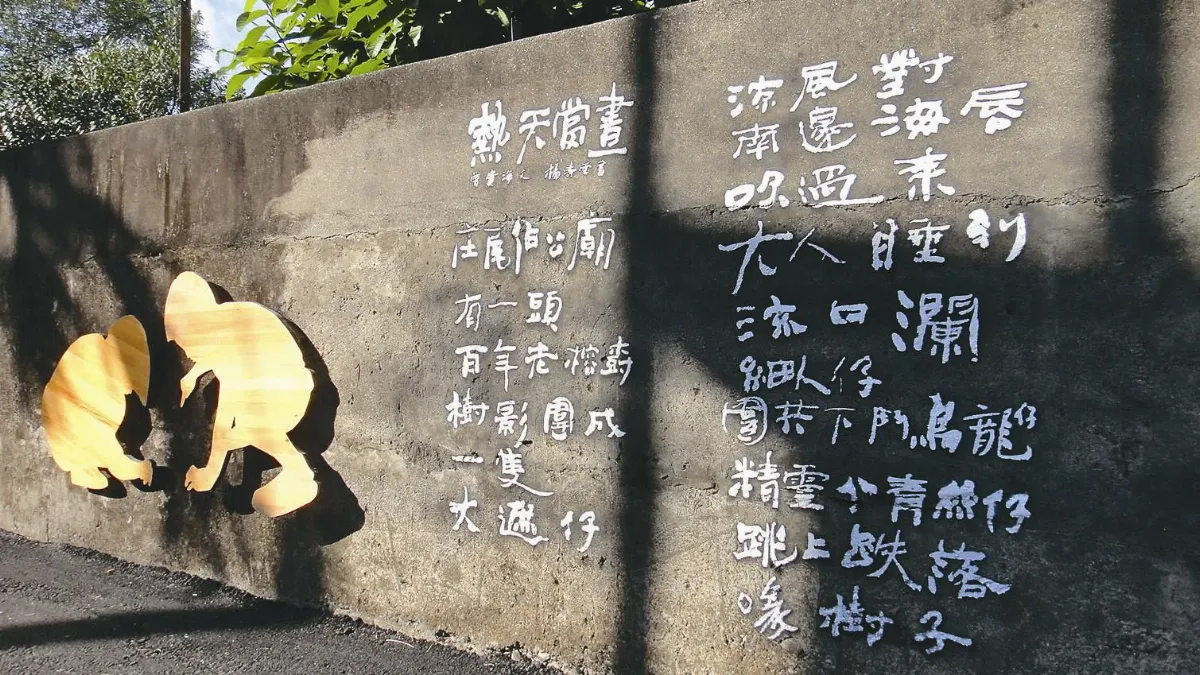 熱天當晝
曾貴海文
庄尾伯公廟
有一頭
百年老榕樹
樹影圍成
一隻
大遮仔
涼風對
南邊海唇
吹過來
大人睡到
流口瀾
細人仔
圍共下鬥烏龍仔
精靈个青絲仔
跳上跌落
喙樹子